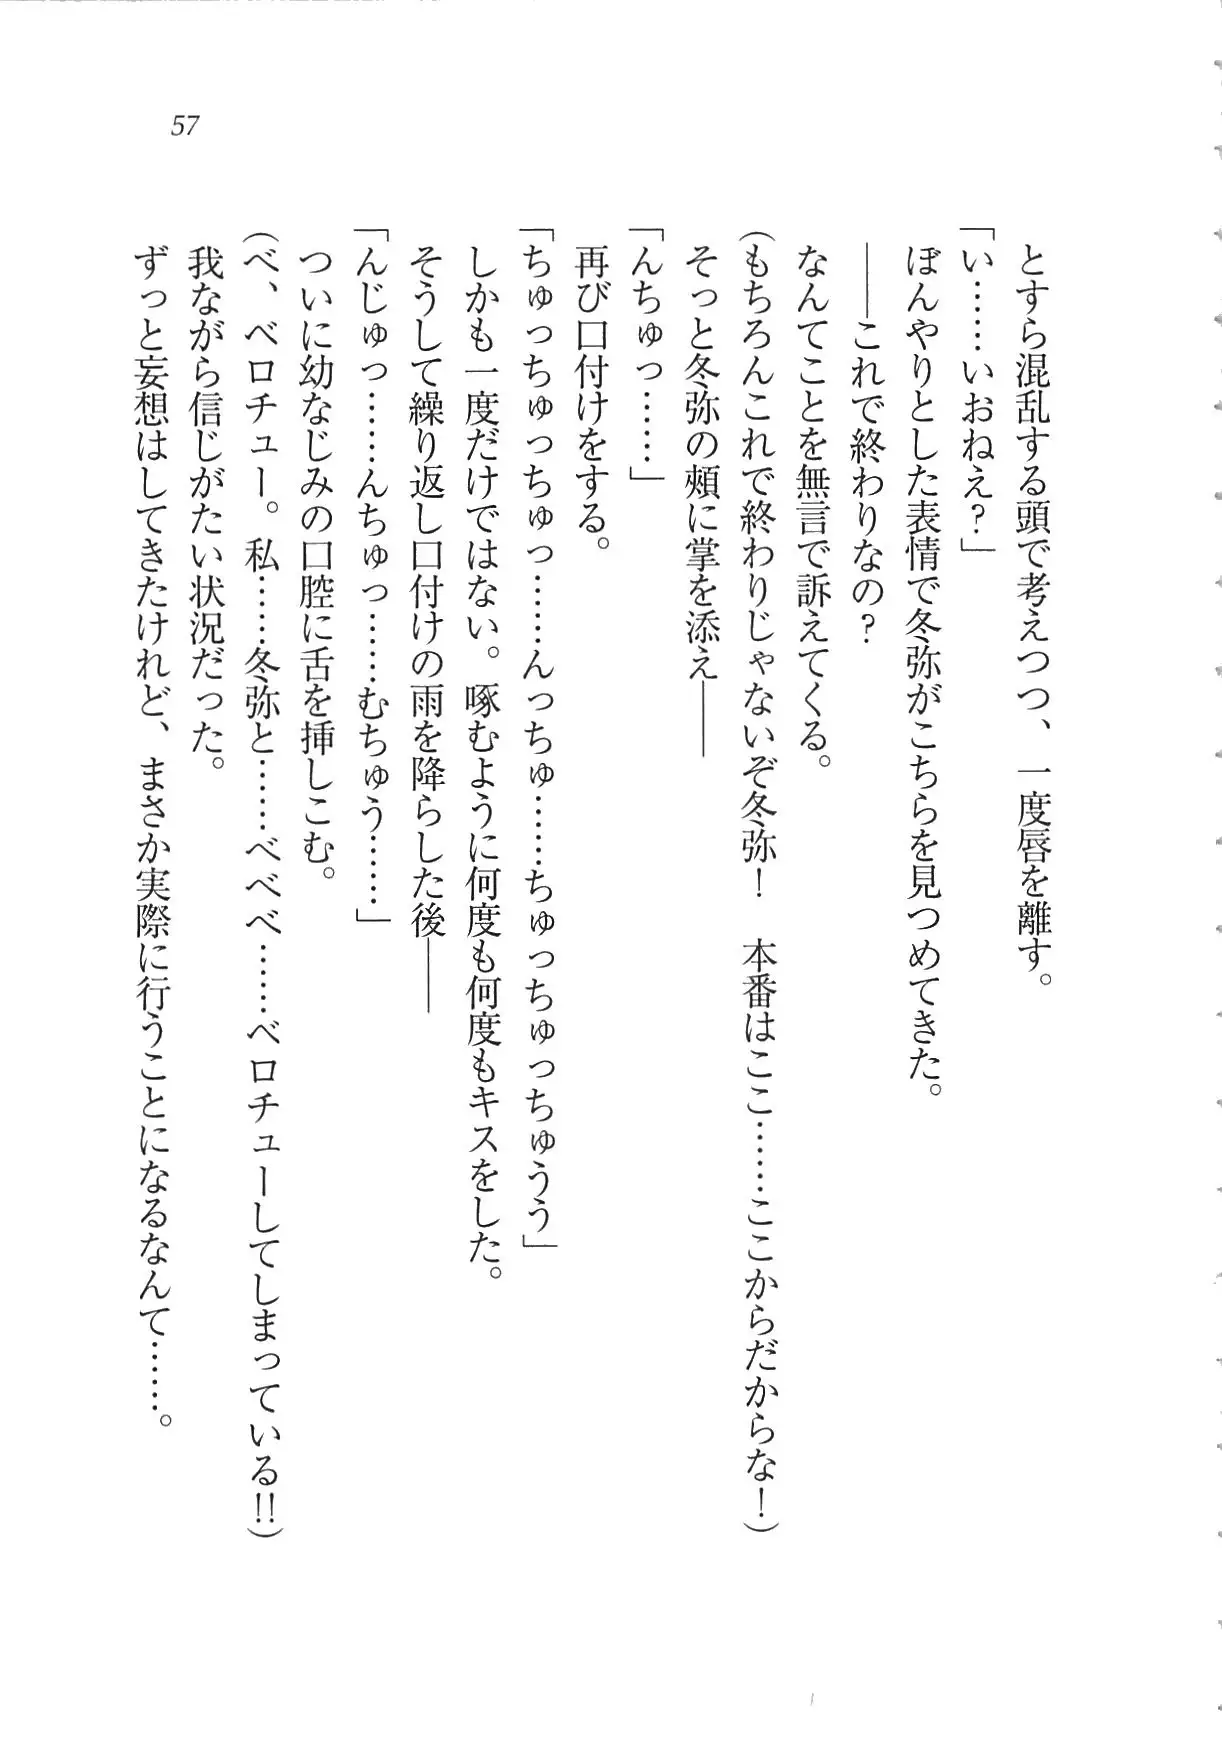 57
とすら混乱する頭で考えつつ、一度唇を離す。
「い……いおねえ？」
ぼんやりとした表情で冬弥がこちらを見つめてきた。
――これで終わりなの？
なんてことを無言で訴えてくる。
（もちろんこれで終わりじゃないぞ冬弥！　本番はここ……ここからだからな！）
そっと冬弥の頰に掌を添え――
「んちゅっ……」
再び口付けをする。
「ちゅっちゅっちゅっ……んっちゅ……ちゅっちゅっちゅうう」
しかも一度だけではない。啄むように何度も何度もキスをした。
そうして繰り返し口付けの雨を降らした後――
「んじゅっ……んちゅっ……むちゅう……」
ついに幼なじみの口腔に舌を挿しこむ。
（べ、ベロチュー。私……冬弥と……べべべ……ベロチューしてしまっている!!）
我ながら信じがたい状況だった。
ずっと妄想はしてきたけれど、まさか実際に行うことになるなんて……。